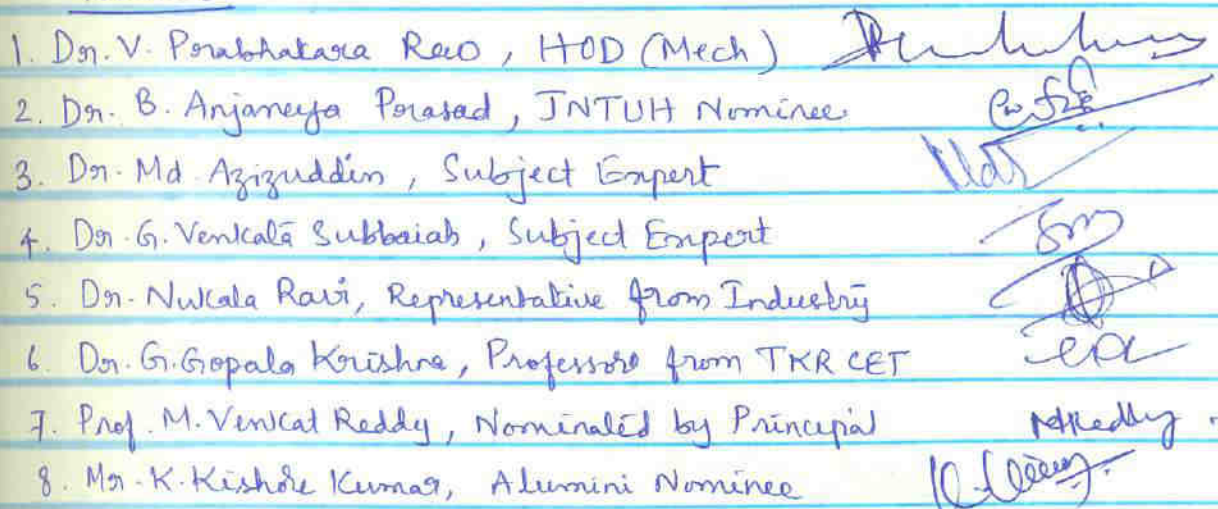 1. Dr. V. Prabhakara Rao, HOD (Mech)
2. Dr. B. Anjaneya Prasad, JNTUH Nominee
3. Dr. Md. Azizuddin, Subject Expert
4. Dr. G. Venkata Subbaiah, Subject Expert
5. Dr. Nukala Ravi, Representative from Industry
6. Dr. G. Gopala Krishna, Professor from TKR CET
7. Prof. M. Venkat Reddy, Nominated by Principal
8. Mr. K. Kishore Kumar, Alumini Nominee